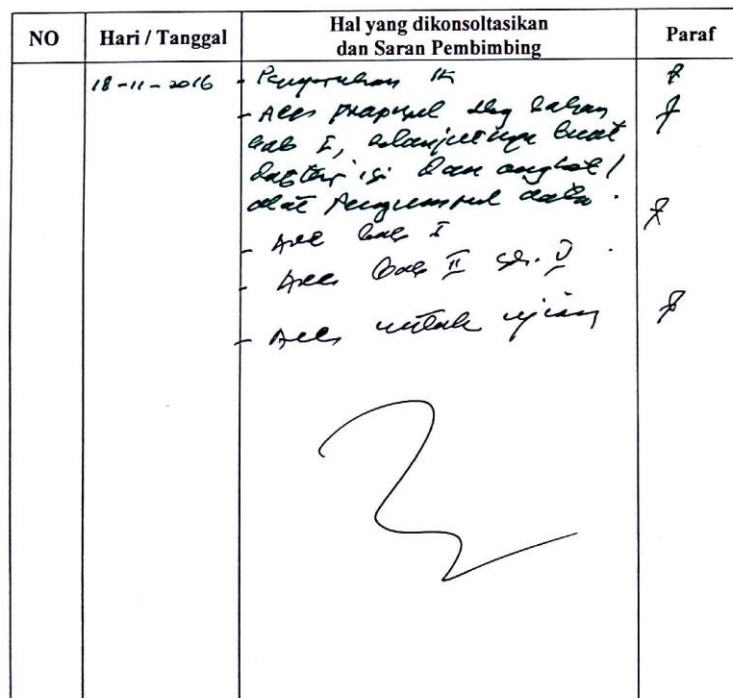 NO
Hari / Tanggal
Hal yang dikonsoltasikan
dan Saran Pembimbing
Paraf
18-11-2016
- Penyerahan
- Acc proposal dbg bahan
bab I, selanjutnya buat
daftar isi dan angket /
alat pengumpul data.
- Acc bab I
- Acc Bab II s.
- Acc untuk ujian